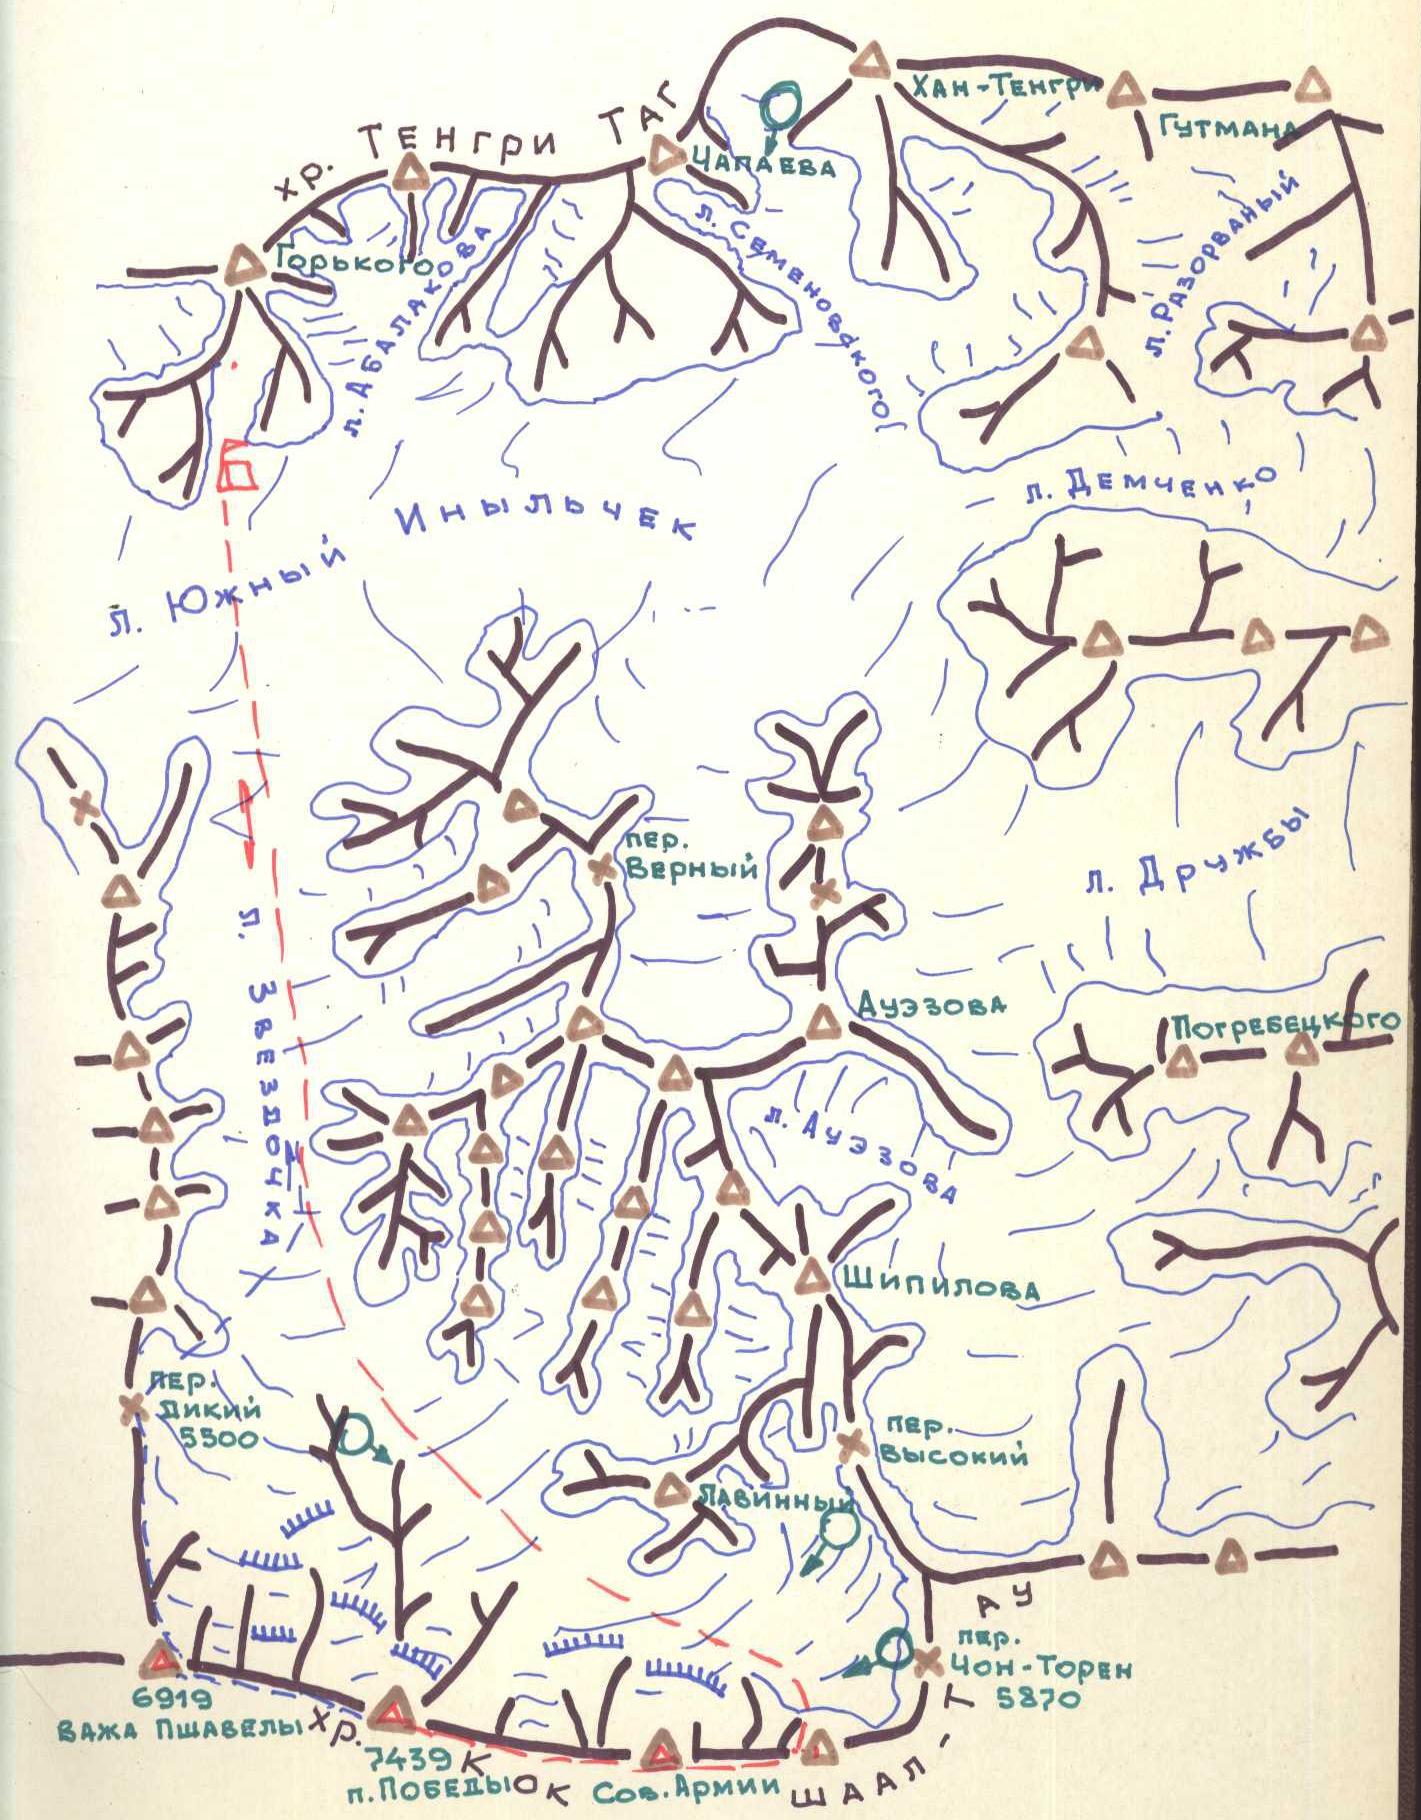 хр. Тенгри Таг
Хан-Тенгри
Гутмана
Чапаева
Горького
л. Абалакова
л. Семеновского
л. Разорваный
л. Демченко
л. Южный Иныльчек
пер.
Верный
л. Дружбы
л. Звездочка
Ауэзова
Погребецкого
л. Ауэзова
Шипилова
пер.
Дикий
5500
пер.
Высокий
Лавинный
пер.
Чон-Торен
5870
6919
Важа Пшавелы
7439
п. Победы
Сов. Армии
хр. Кокшаал-Тау